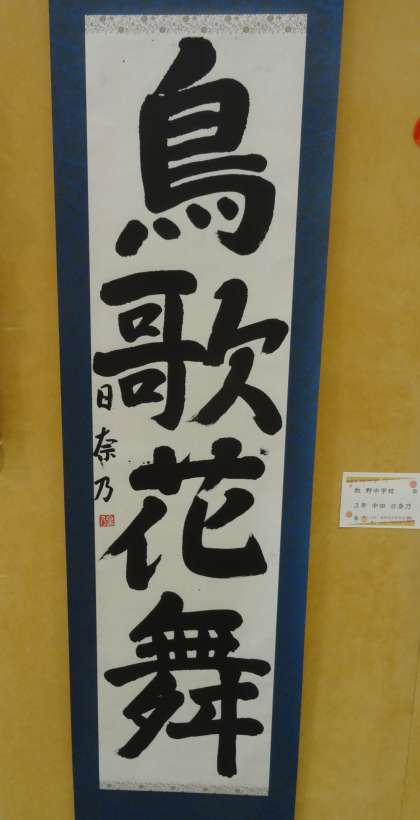 鳥歌花舞
日奈乃
牧野中学校
3年 中田 日奈乃